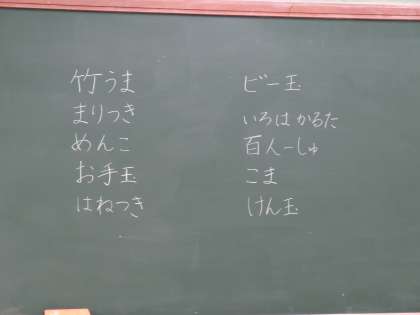 竹うま
まりつき
めんこ
お手玉
はねつき
ビー玉
いろはかるた
百人一しゅ
こま
けん玉